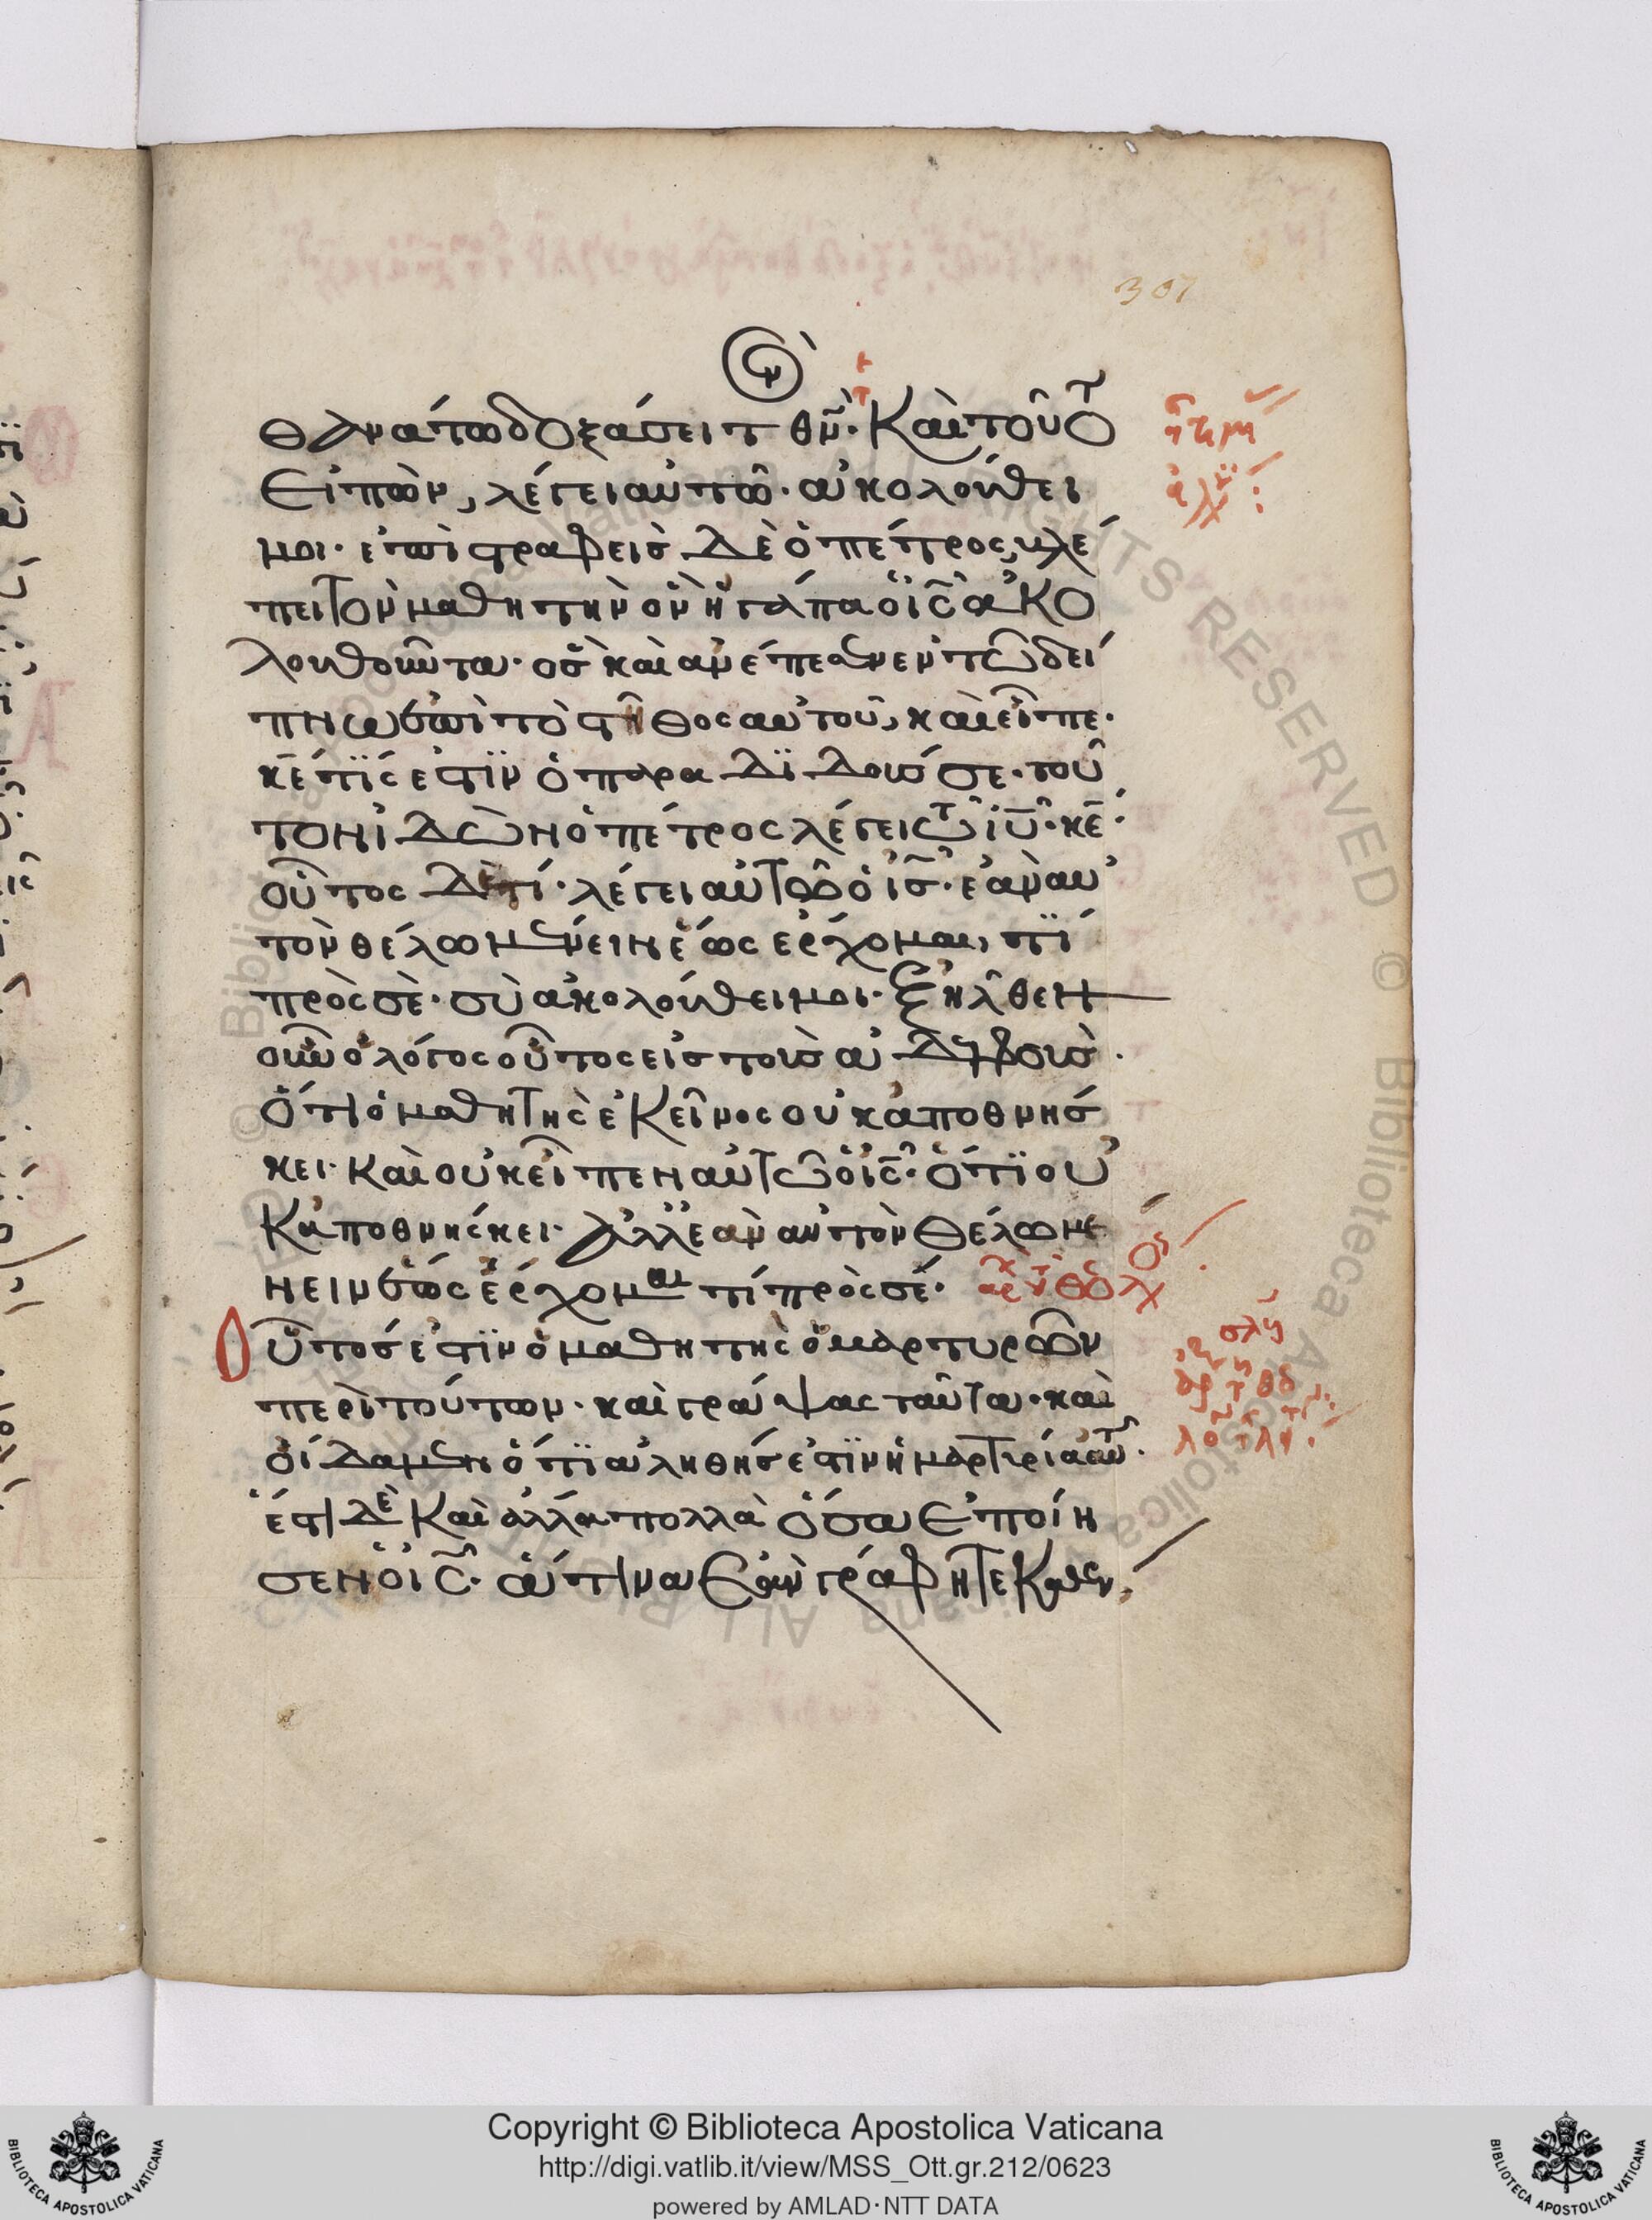 307
θανάτω δοξάσει τ θν̄. Καὶ τοῦτο
Εἰπὼν, λέγει αὐτῶ. ἀκολούθει
μοι. ἐπιστραφεὶς δὲ ὁ πέτρος, βλέ
πει τὸν μαθητὴν ὃν ἠγάπα ὁ ἰς̄ ἀκο
λουθοῦντα. ὃς καὶ ἀνέπεσεν ἐν τῶ δεί
πνω ἐπὶ τὸ στῆθος αὐτοῦ, καὶ εἶπε.
κε̄ τίς ἐστϊν ὁ παραδϊδούς σε. τοῦ
τον ἰδὼν ὁ πέτρος λέγει τῶ ιῡ. κε̄.
οὗτος δὲ τί. λέγει αὐτῶ ὁ ἰς̄. ἐὰν αὐ
τὸν θέλω μένειν ἕως ἔρχομαι, τϊ
πρὸς σὲ. σὺ ἀκολούθει μοι. Ἐξῆλθεν
οὖν ὁ λόγος οὗτος εἰς τοὺς ἀδελφοὺς.
Ὅτι ὁ μαθητὴς ἐκεῖνος οὐκ ἀποθνής
κει. Καὶ οὐκ εἶπεν αὐτῶ ὁ ἰς̄. ὅτϊ οὐ
κ ἀποθνήσκει. Ἀλλ ἐὰν αὐτὸν θέλω μέ
νειν ἕως ἔρχομαι τί πρὸς σέ.
Οὗτός ἐστϊν ὁ μαθητὴς ὁ μαρτυρῶν
περὶ τούτων. καὶ γράψας ταῦτα. καὶ
οἴδαμεν ὅτϊ ἀληθής ἐστϊν ἡ μαρτυρία αὐτ.
ἔστι δὲ Καὶ ἄλλα πολλὰ ὅσα Ἐποίη
σεν ὁ ἰς̄. ἅτινα Ἐὰν γράφητε Καθεν,
Copyright © Biblioteca Apostolica Vaticana
http://digi.vatlib.it/view/MSS_Ott.gr.212/0623
powered by AMLAD·NTT DATA
BIBLIOTECA APOSTOLICA VATICANA
BIBLIOTECA APOSTOLICA VATICANA